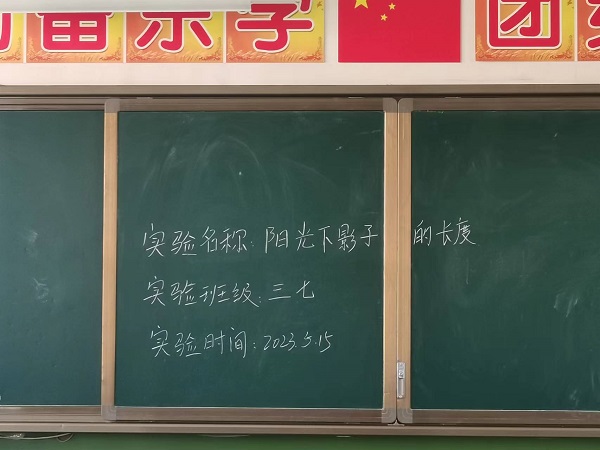 奋乐学 团
实验名称:阳光下影子的长度
实验班级:三七
实验时间:2023.5.15